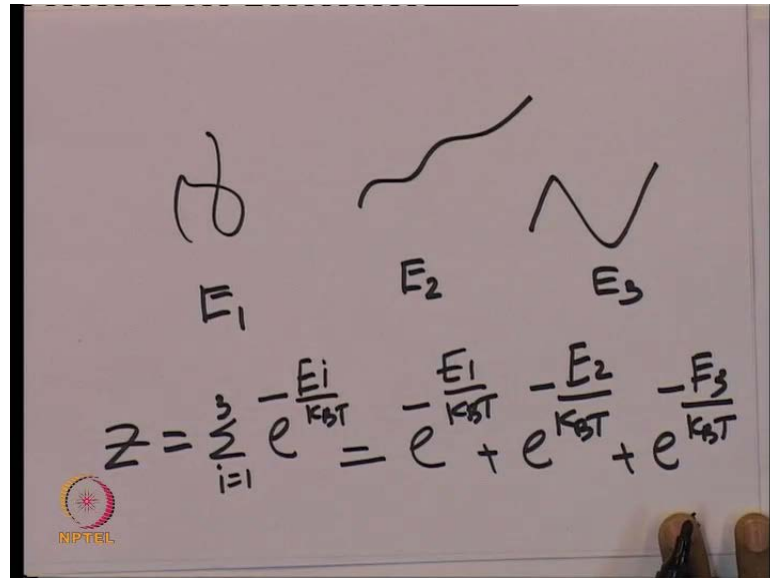 E₁ E₂ E₃
Z = Σ_{i=1}^{3} e^{-Ei/KBT} = e^{-E1/KBT} + e^{-E2/KBT} + e^{-E3/KBT}
NPTEL